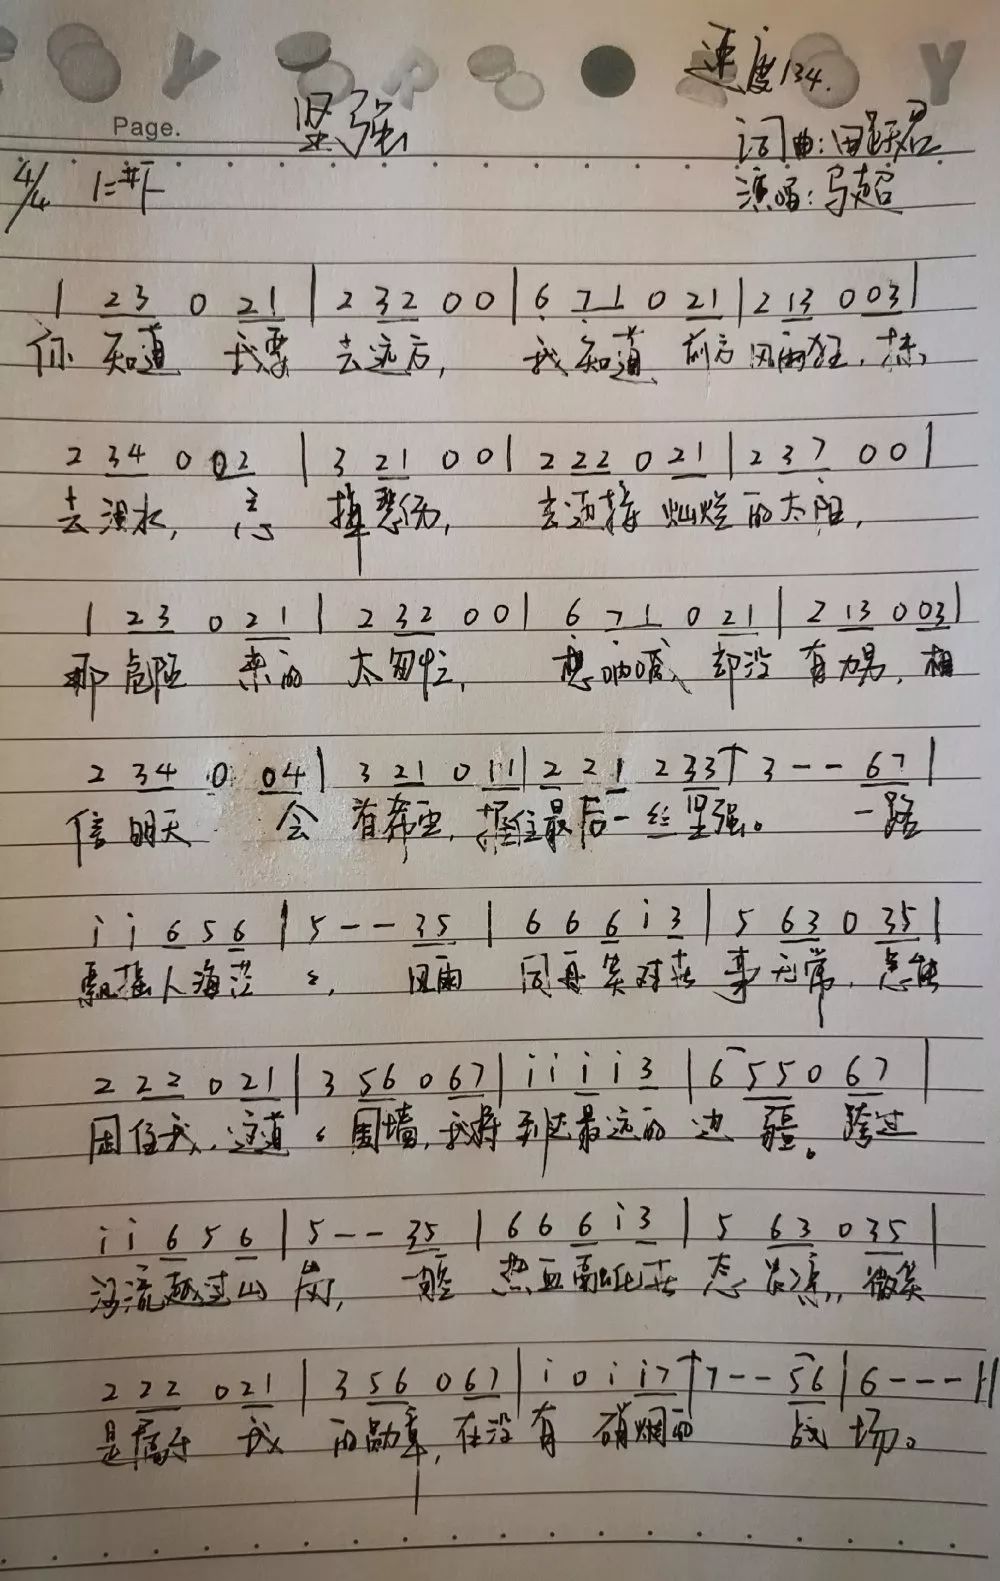 速度134.
Page.
坚强
词曲:田跃君
4/4 1=#F
演唱:马超
1 23 0 21 | 2 32 0 0 | 6 71 0 21 | 2 13 0 03 |
你 知道 我要 去远方, 我知道 前方风雨狂,
2 34 0 02 | 3 21 0 0 | 2 22 0 21 | 2 37 0 0 |
去泪水, 掉悲伤, 去迎接 灿烂的太阳,
1 23 0 21 | 2 32 0 0 | 6 71 0 21 | 2 13 0 03 |
那危险 来的 太匆忙, 想呐喊 却没有力量, 相
2 34 0 04 | 3 21 0 11 | 2 2 1 2 33 | 3 - - 67 |
信明天 会有希望, 握住最后一丝坚强。 一路
i i 6 5 6 | 5 - - 35 | 6 6 6 i 3 | 5 63 0 35 |
飘摇人海茫 风雨 同舟笑对世事无常, 怎能
2 22 0 21 | 3 56 0 67 | i i i i 3 | 6 55 0 67 |
困住我, 这道 围墙, 我将到达最远的边疆。 跨过
i i 6 5 6 | 5 - - 35 | 6 6 6 i 3 | 5 63 0 35 |
河流越过山岗, 一腔 热血融化世态炎凉, 微笑
2 22 0 21 | 3 56 0 67 | i 0 i i7 | 7 - - 56 | 6 - - - ||
是属于 我 的勋章, 在没有 硝烟的 战场。